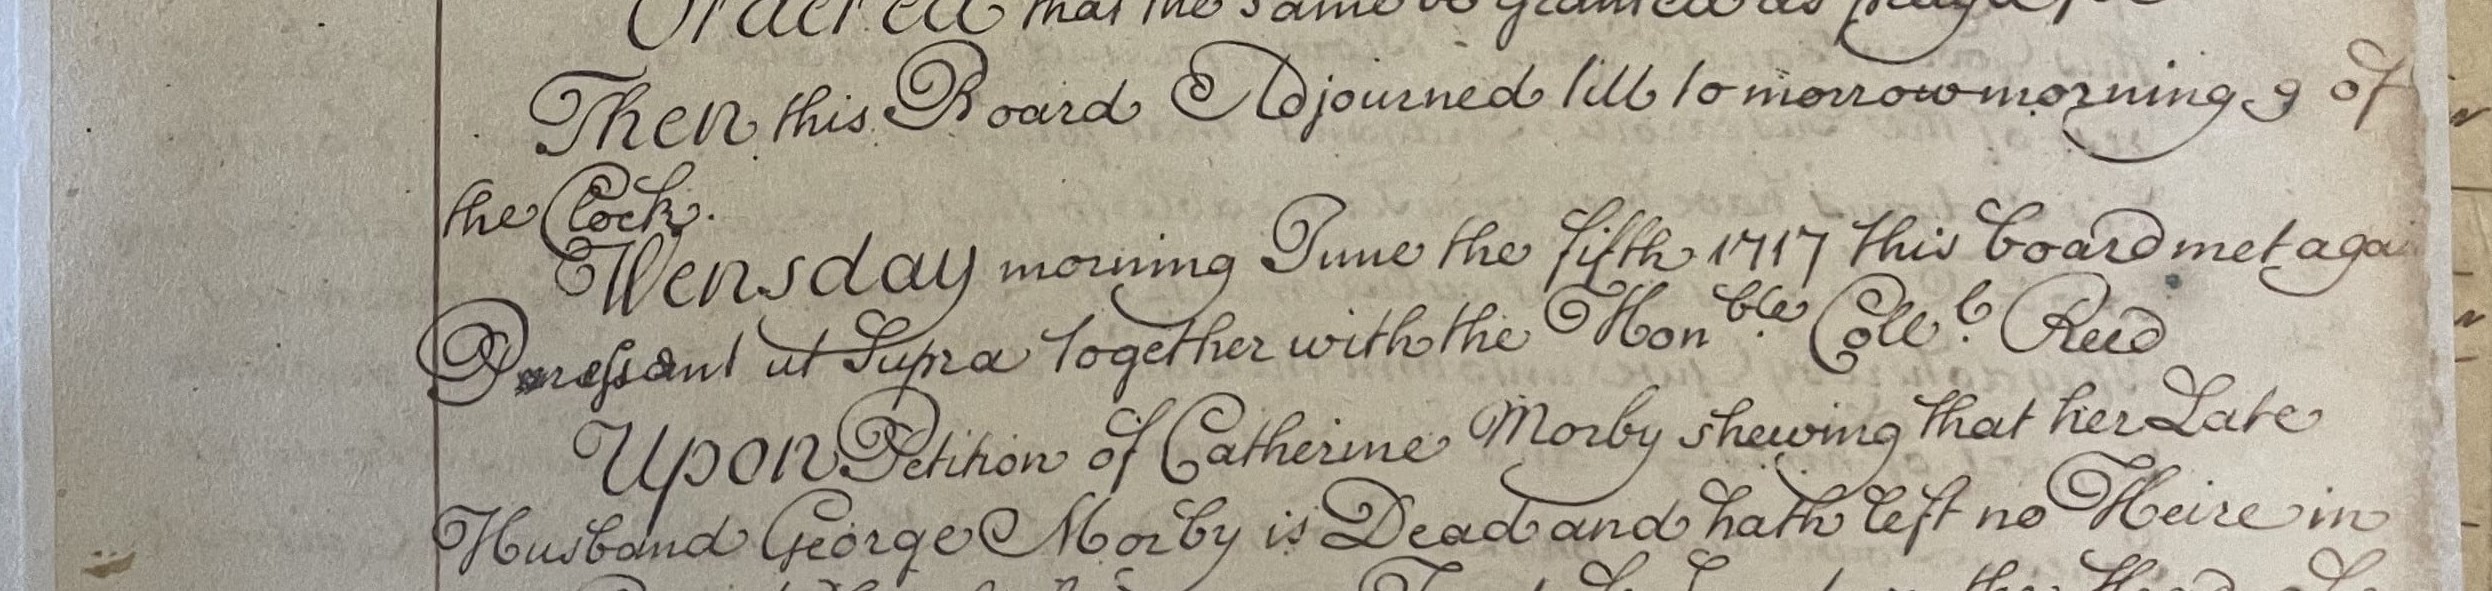 Ordered that the same be granted as pray'd for
Then this Board Adjourned till to morrow morning 9 of
the Clock.
Wensday morning June the fifth 1717 this board met agai
Pressant ut Supra together with the Hon.ble Coll.l Reed
Upon Petition of Catherine Morby shewing that her Late
Husband George Morby is Dead and hath left no Heire in